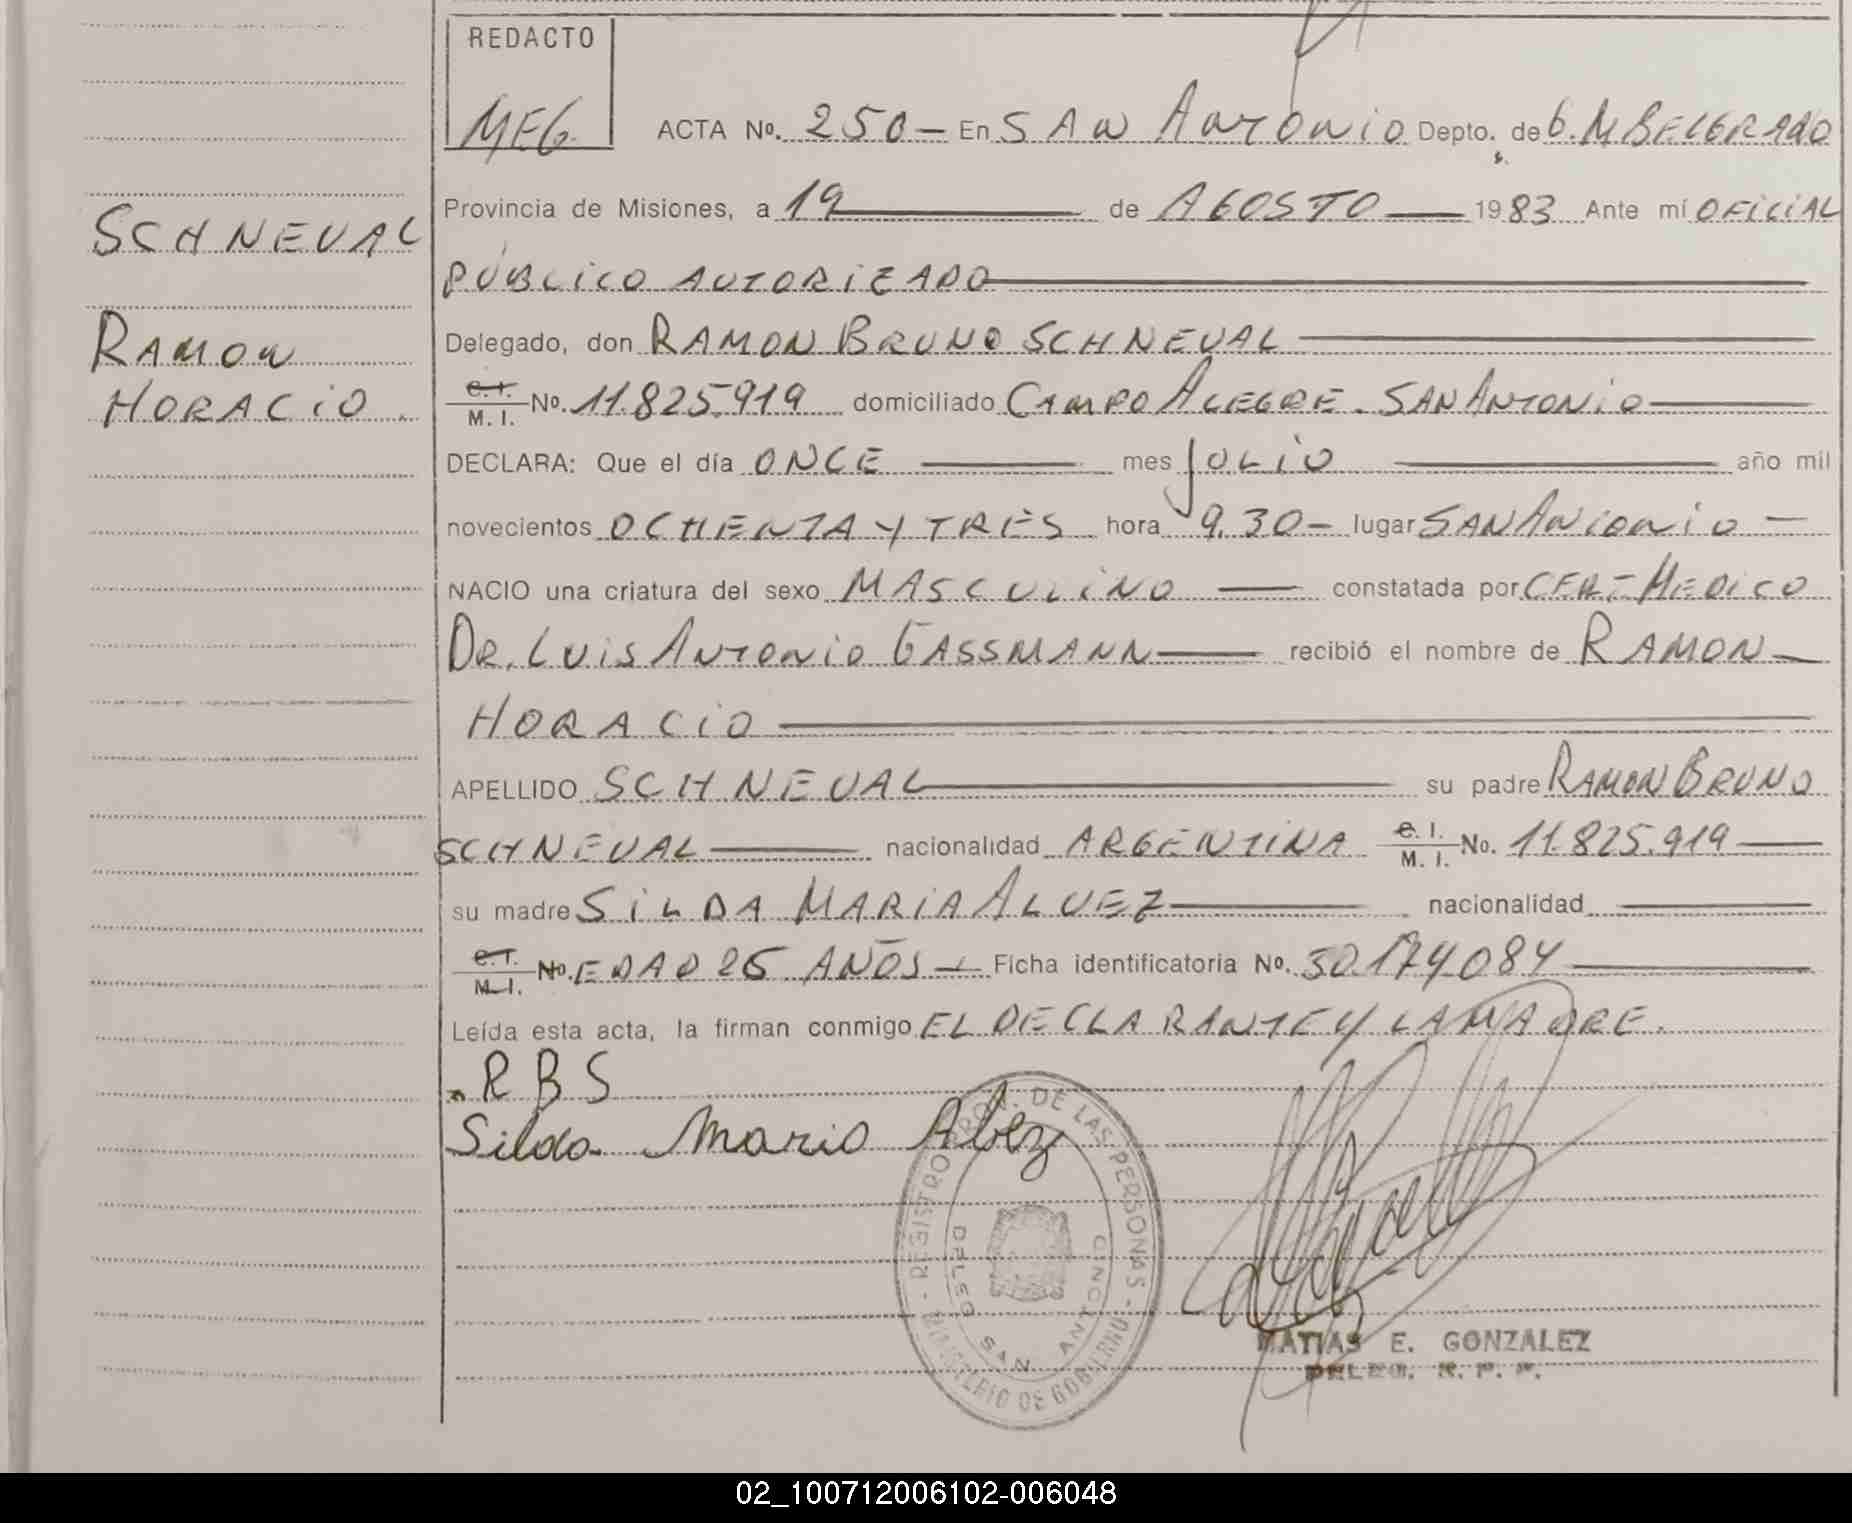 REDACTO
MEG.
ACTA No. 250 — En SAN ANTONIO Depto. de G. M BELGRANO
Provincia de Misiones, a 19 de AGOSTO 1983 Ante mí OFICIAL
SCHNEVAL
PÚBLICO AUTORIZADO
RAMON
Delegado, don RAMON BRUNO SCHNEVAL
HORACIO.
C.I. M. I. No. 11.825.919 domiciliado CAMPO ALEGRE. SAN ANTONIO
DECLARA: Que el día ONCE mes JULIO año mil
novecientos OCHENTA Y TRES hora 9.30 — lugar SAN ANTONIO —
NACIO una criatura del sexo MASCULINO constatada por CERT MEDICO
DR. LUIS ANTONIO GASSMANN recibió el nombre de RAMON
HORACIO
APELLIDO SCHNEVAL su padre RAMON BRUNO
SCHNEVAL nacionalidad ARGENTINA C.I. M. I. No. 11.825.919
su madre SILDA MARIA ALVEZ nacionalidad
C.I. M.I. No. EDAD 25 AÑOS — Ficha identificatoria No. 30.174.084
Leída esta acta, la firman conmigo EL DECLARANTE Y LA MADRE.
RBS
Silda Maria Alvez
REGISTRO PROV. DE LAS PERSONAS - MINISTERIO DE GOBIERNO -
DELEG SAN ANTONIO
MATIAS E. GONZALEZ
DELEG. R. P. P.
02_100712006102-006048